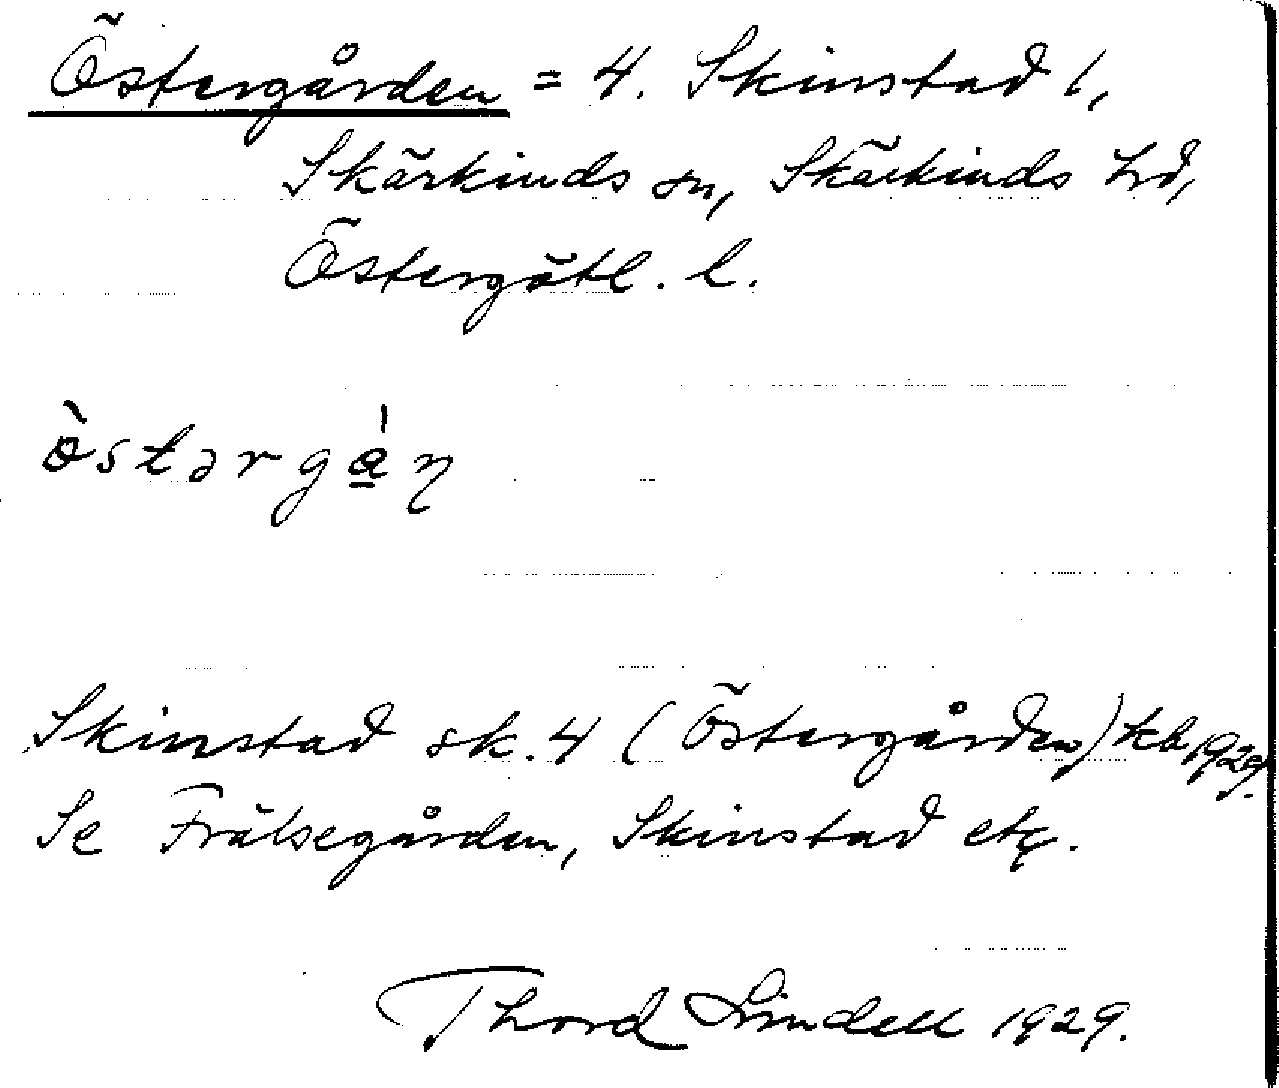 Östergården = 4. Skinstad 1,
Skärkinds sn, Skärkinds hd,
Östergötl. l.
òstərgɑ̱̍ɳ
Skinstad sk. 4 (Östergården) kb 1929.
Se Frälsegården, Skinstad etc.
Thord Lindell 1929.